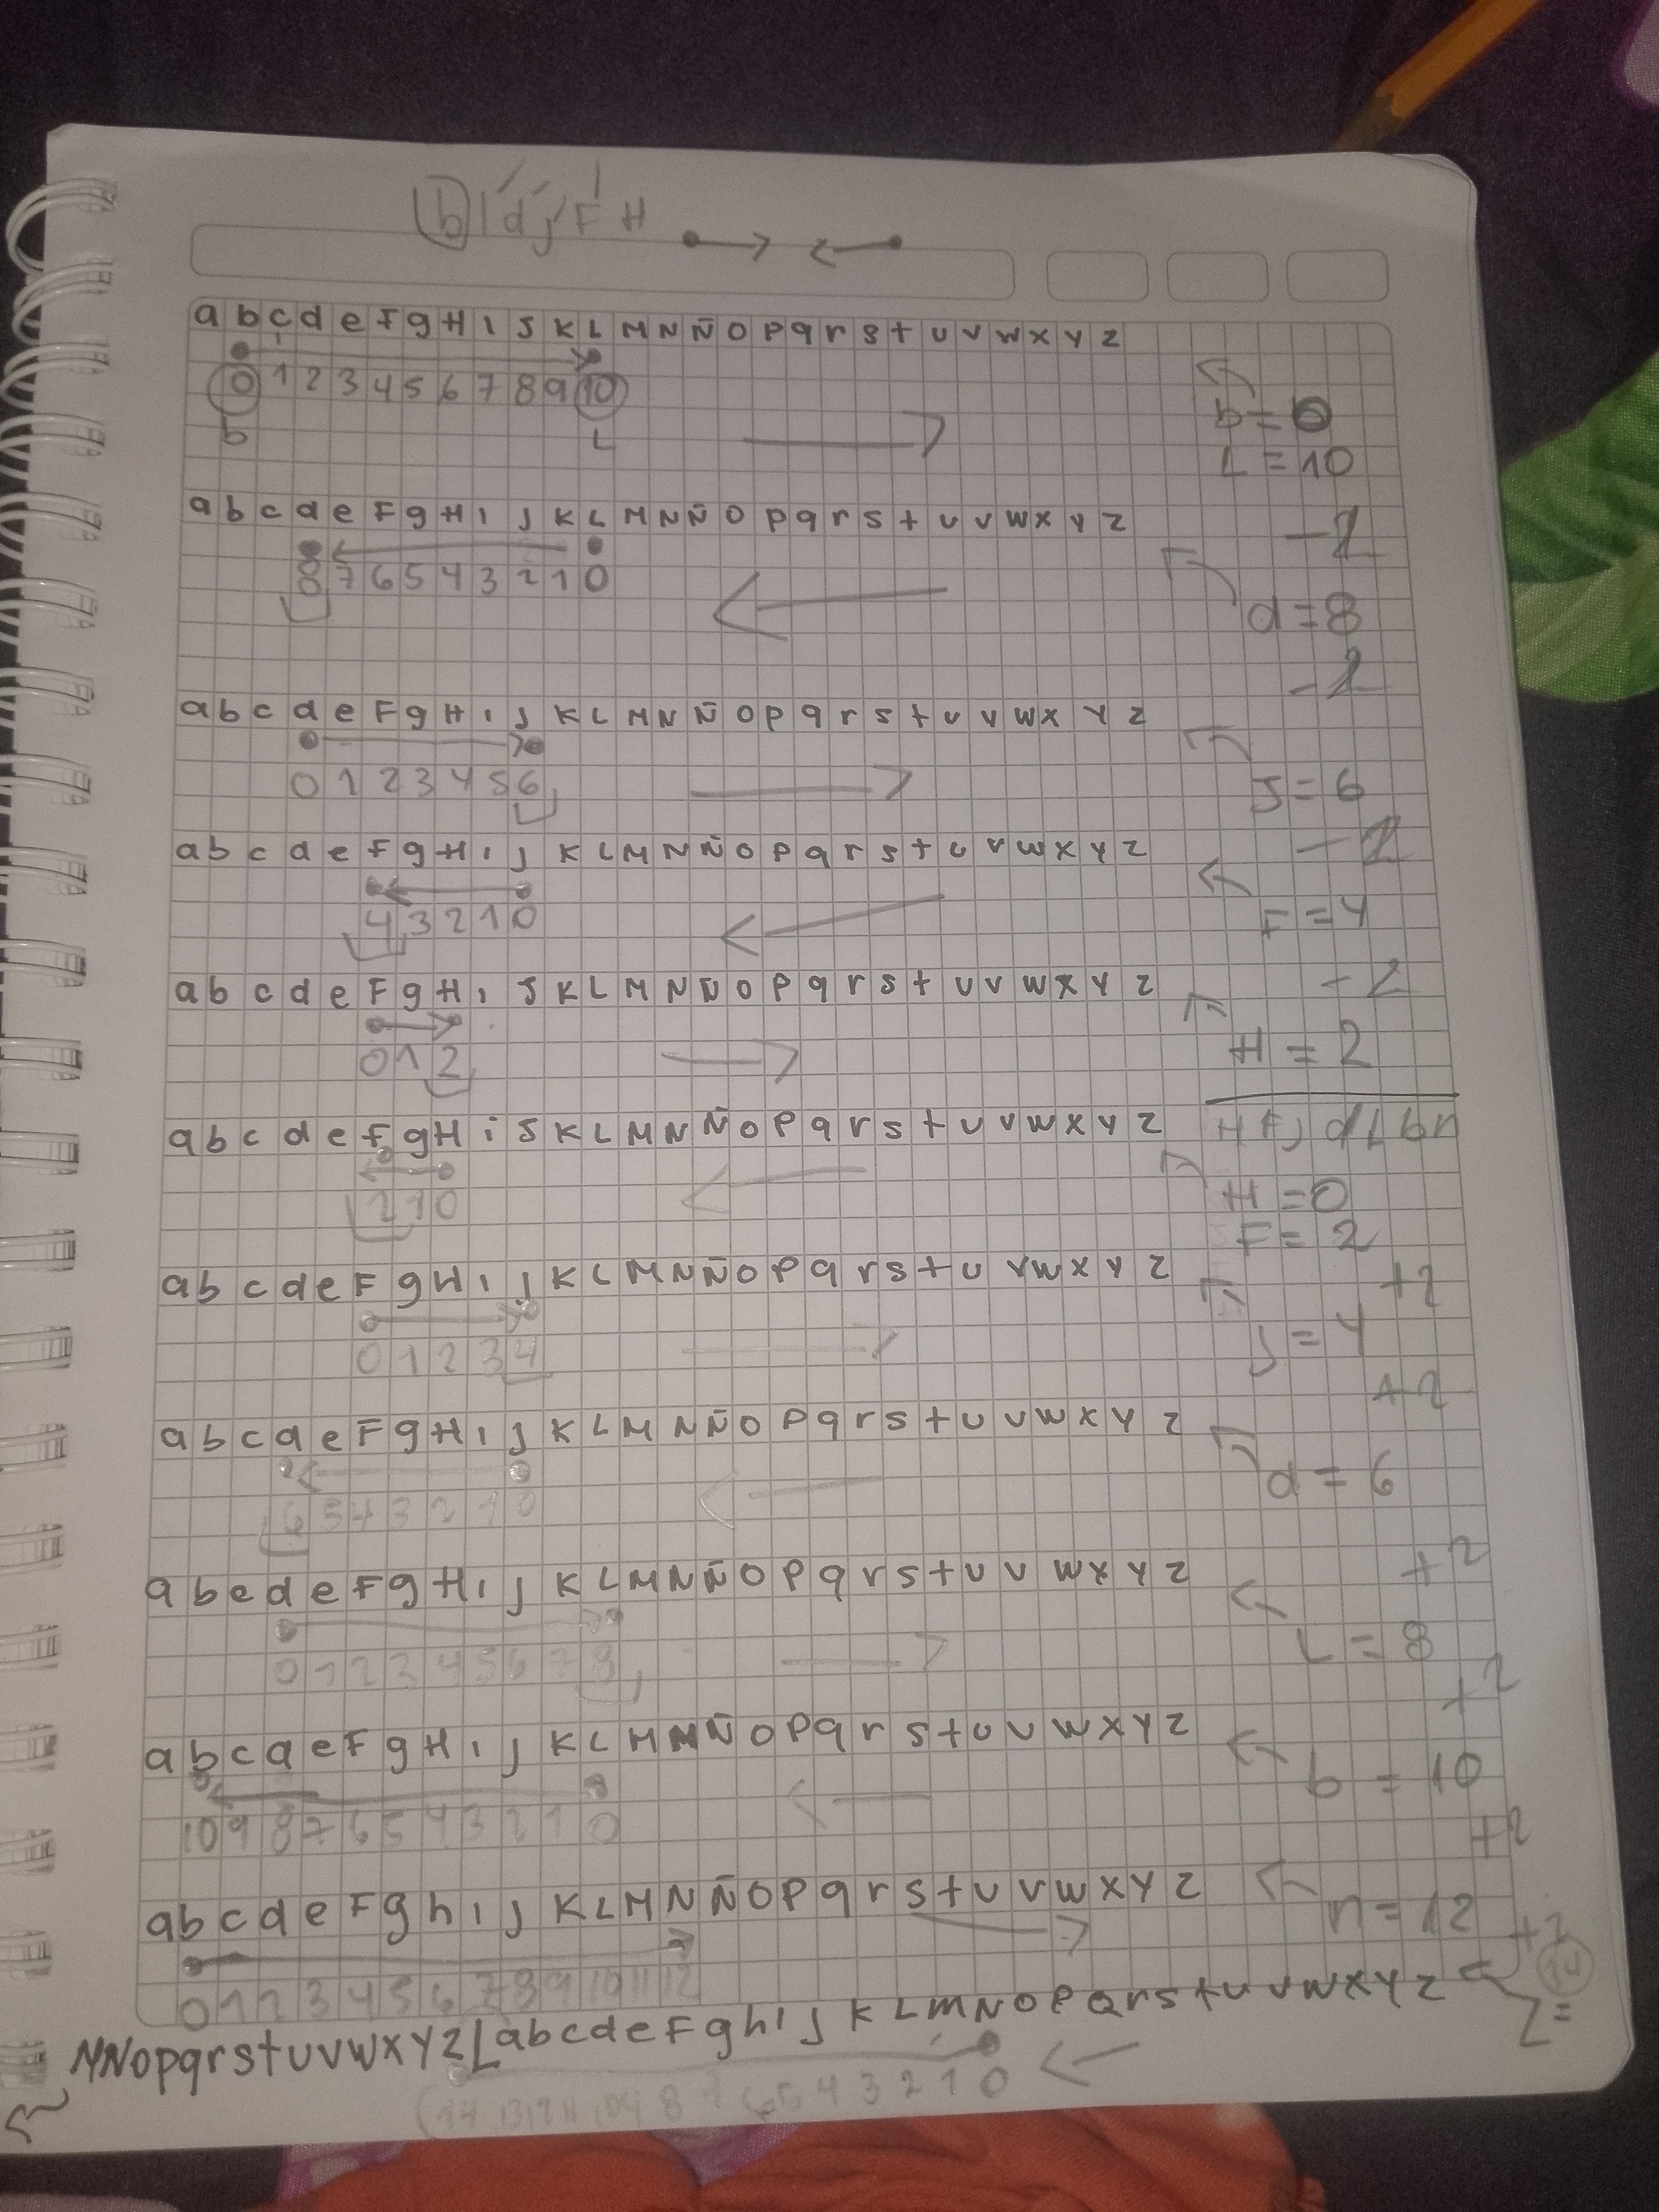 b l d j F H
a b c d e F g H I J K L M N Ñ O P q r s t u v w x y z
0 1 2 3 4 5 6 7 8 9 10
b = 0
b L
L = 10
a b c d e F g H I J K L M N Ñ O P q r s t u v w x y z
-2
8 7 6 5 4 3 2 1 0
d = 8
-2
a b c d e F g H I J K L M N Ñ O P q r s t u v w x y z
0 1 2 3 4 5 6
J = 6
a b c d e F g H I J K L M N Ñ O P q r s t u v w x y z
-2
4 3 2 1 0
F = 4
a b c d e F g H I J K L M N Ñ O P q r s t u v w x y z
-2
0 1 2
H = 2
a b c d e F g H i J K L M N Ñ O P q r s t u v w x y z
2 1 0
H = 0
F = 2
a b c d e F g H I J K L M N Ñ O P q r s t u v w x y z
+2
0 1 2 3 4
J = 4
+2
a b c d e F g H I J K L M N Ñ O P q r s t u v w x y z
6 5 4 3 2 1 0
d = 6
+2
a b c d e F g H I J K L M N Ñ O P q r s t u v w x y z
0 1 2 3 4 5 6 7 8
L = 8
+2
a b c d e F g H I J K L M N Ñ O P q r s t u v w x y z
b = 10
10 9 8 7 6 5 4 3 2 1 0
+2
a b c d e F g h I J K L M N Ñ O P q r s t u v w x y z
n = 12
+2
0 1 2 3 4 5 6 7 8 9 10 11 12
14
Z =
M N O p q r s t u v w x y z [ a b c d e F g h I J K L M N O P Q r s t u v w x y z
14 13 12 11 10 9 8 7 6 5 4 3 2 1 0